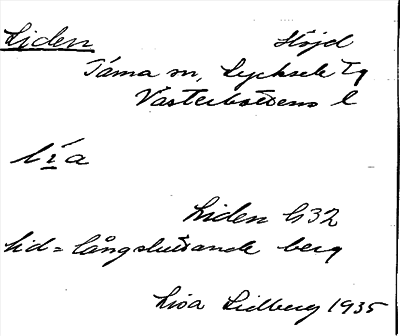 Liden Höjd
Tärna sn, Lycksele Tg
Västerbottens l
lia
Liden G32
lid = långsluttande berg
Lisa Lidberg 1935